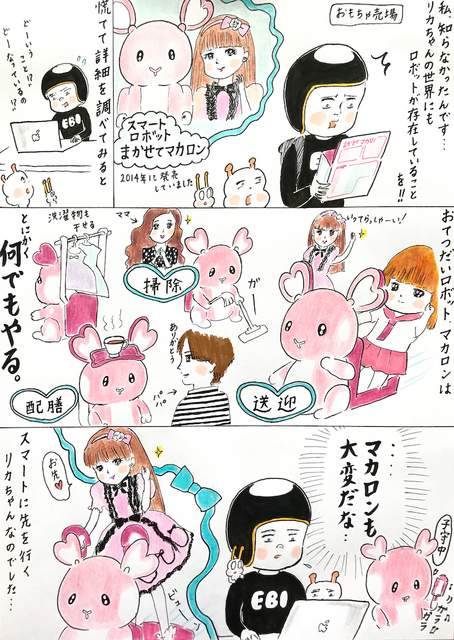 おもちゃ売場
私、知らなかったんです…
リカちゃんの世界にも
ロボットが存在していること
を!!
スマート
ロボット
まかせてマカロン
2014年に発売
していました
まかせてマカロン
慌てて詳細を調べてみると
どーいうこと!?
どーなっているの
!?
EBI
おてつだいロボット、マカロンは
いってらっしゃーい!
送迎
ママ→
掃除
ガー
ありがとう
パパ→
洗濯物も
干せる
配膳
とにかく
何でもやる。
子守中
ガラガラ
マカロンも
大変だな…
EBI
お先♡
ビューン
スマートに先を行く
リカちゃんなのでした…